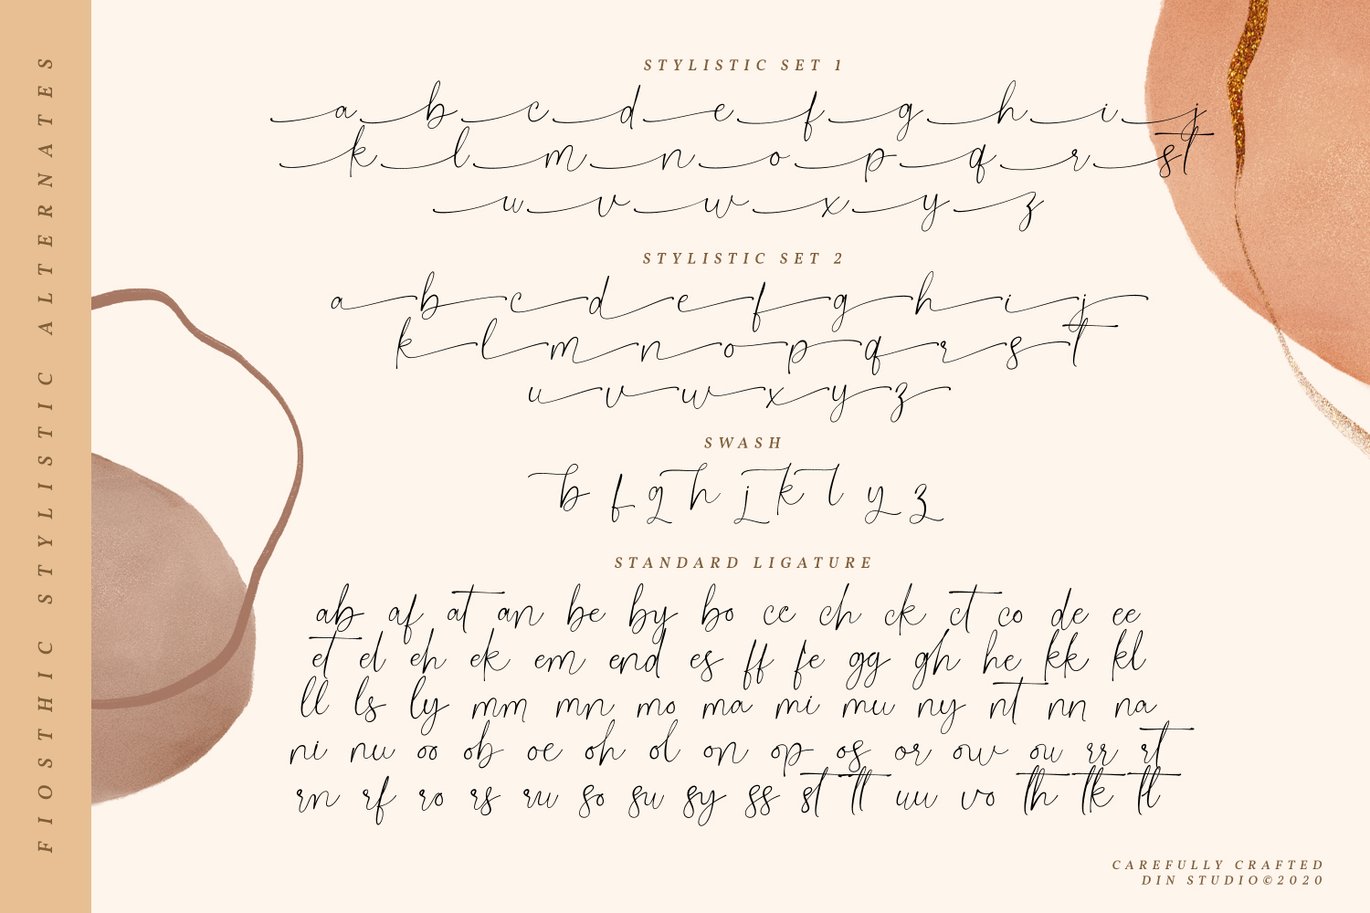 FIOSTHIC STYLISTIC ALTERNATES
STYLISTIC SET 1
a b c d e f g h i j
k l m n o p q r s t
u v w x y z
STYLISTIC SET 2
a b c d e f g h i j
k l m n o p q r s t
u v w x y z
SWASH
b f g h j k l y z
STANDARD LIGATURE
ab af at an be by bo ce ch ck ct co de ee
et el eh ek em end es ff fe gg gh he kk kl
ll ls ly mm mn mo ma mi mu ny nt nn na
ni nu oo ob oe oh ol on op os or ow ou rr rt
rn rf ro rs ru so su sy ss st tt uu vo th tk tl
CAREFULLY CRAFTED
DIN STUDIO©2020